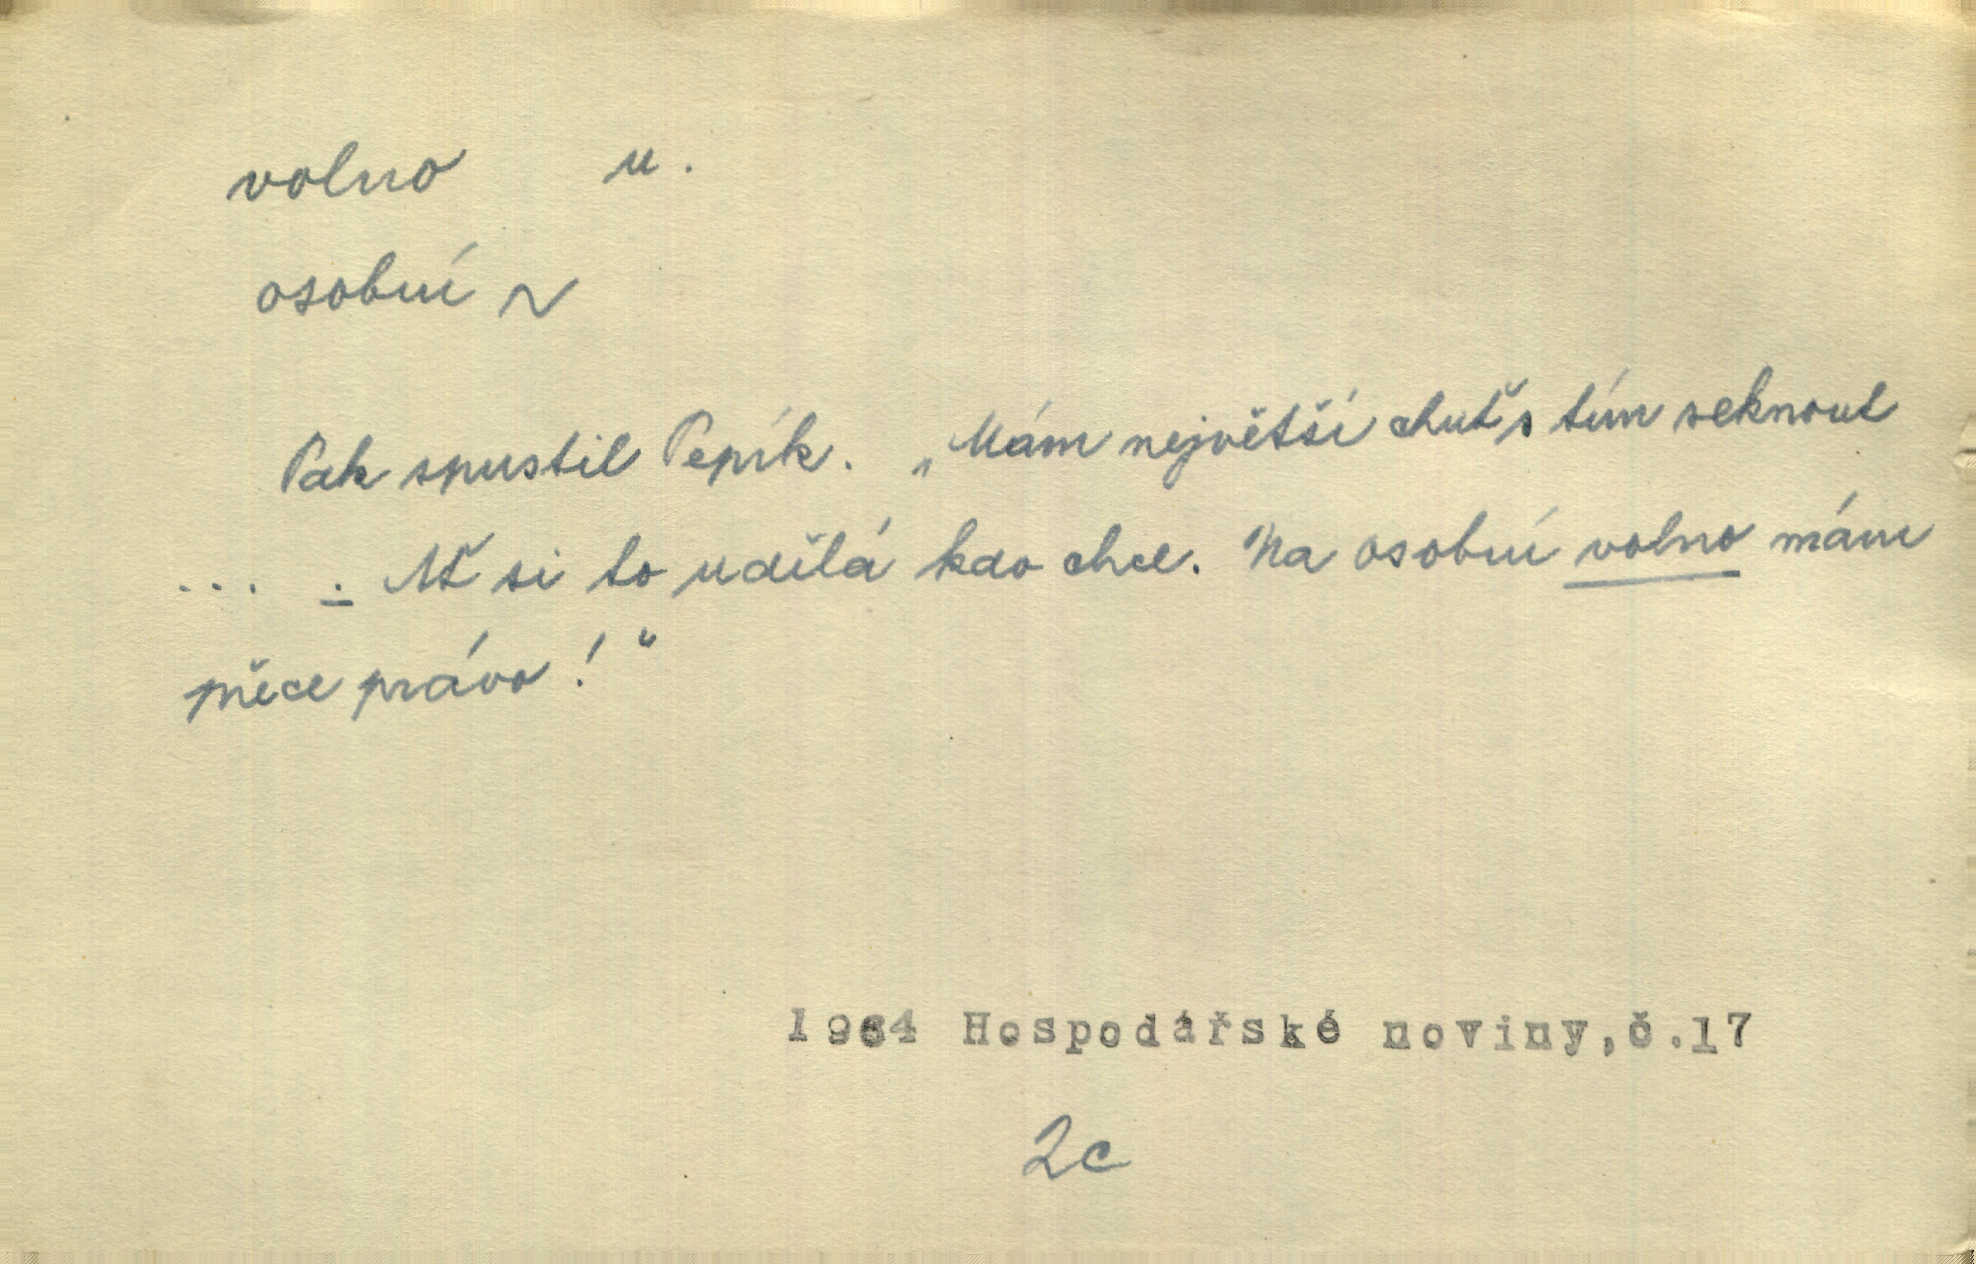 volno n.
osobní ~
Pak spustil Pepík. „Mám největší chuť s tím seknout
... . Ať si to udělá kdo chce. Na osobní volno mám
přece právo!“
1964 Hospodářské noviny, č.17
2c